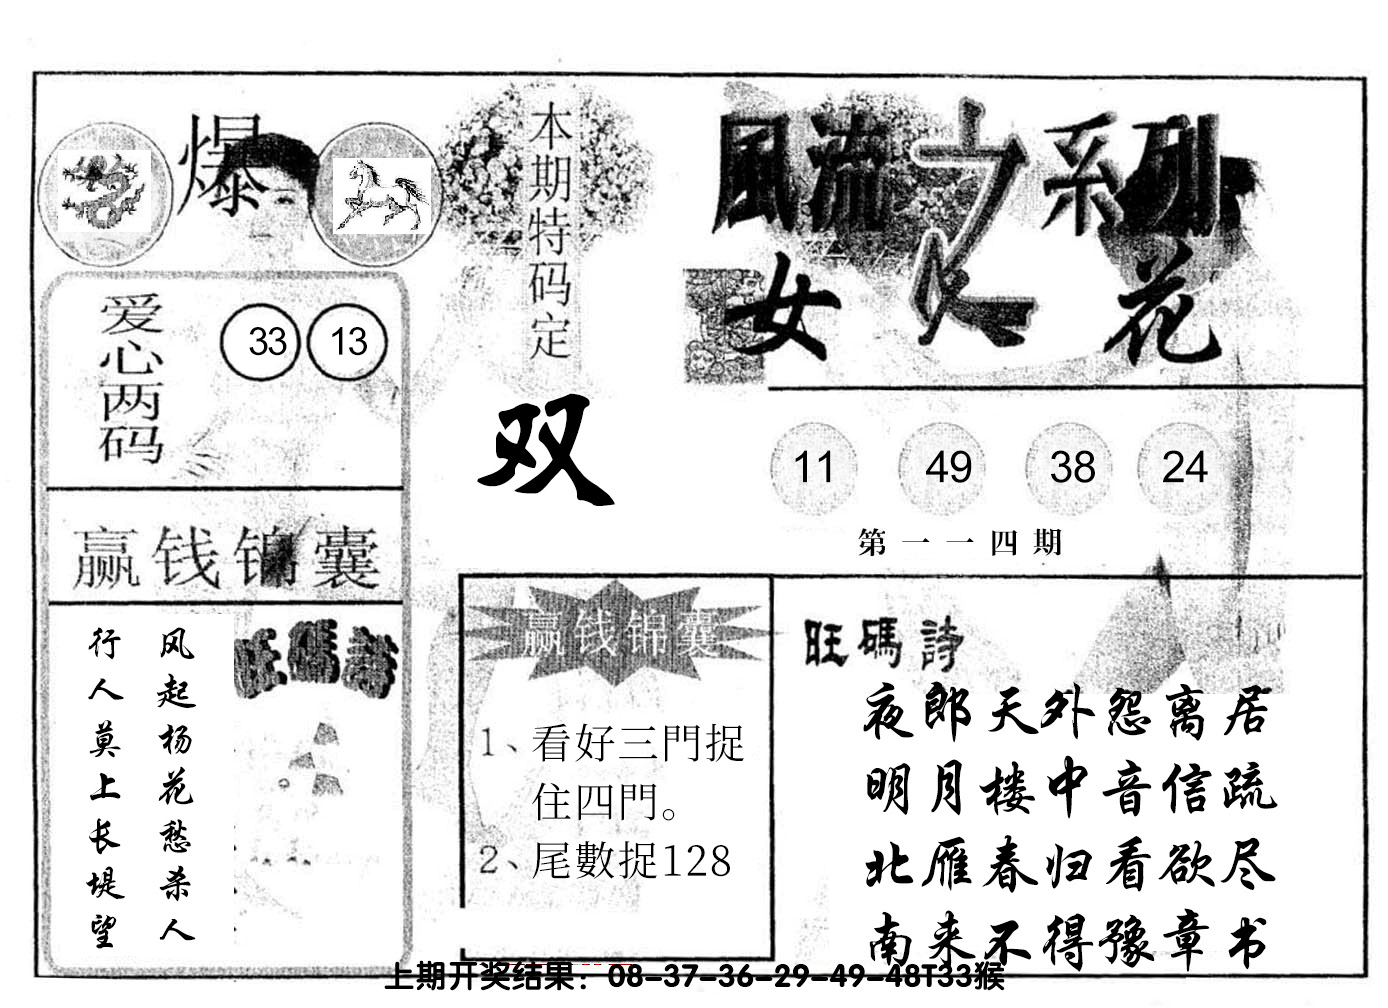 爆
本期特码定
双
風流之系列
女人花
爱心两码
33 13
11 49 38 24
第一一四期
赢钱锦囊
行人莫上长堤望
风起杨花愁杀人
旺碼詩
赢钱锦囊
1、看好三門捉
住四門。
2、尾數捉128
旺碼詩
夜郎天外怨离居
明月楼中音信疏
北雁春归看欲尽
南来不得豫章书
上期开奖结果：08-37-36-29-49-48T33猴